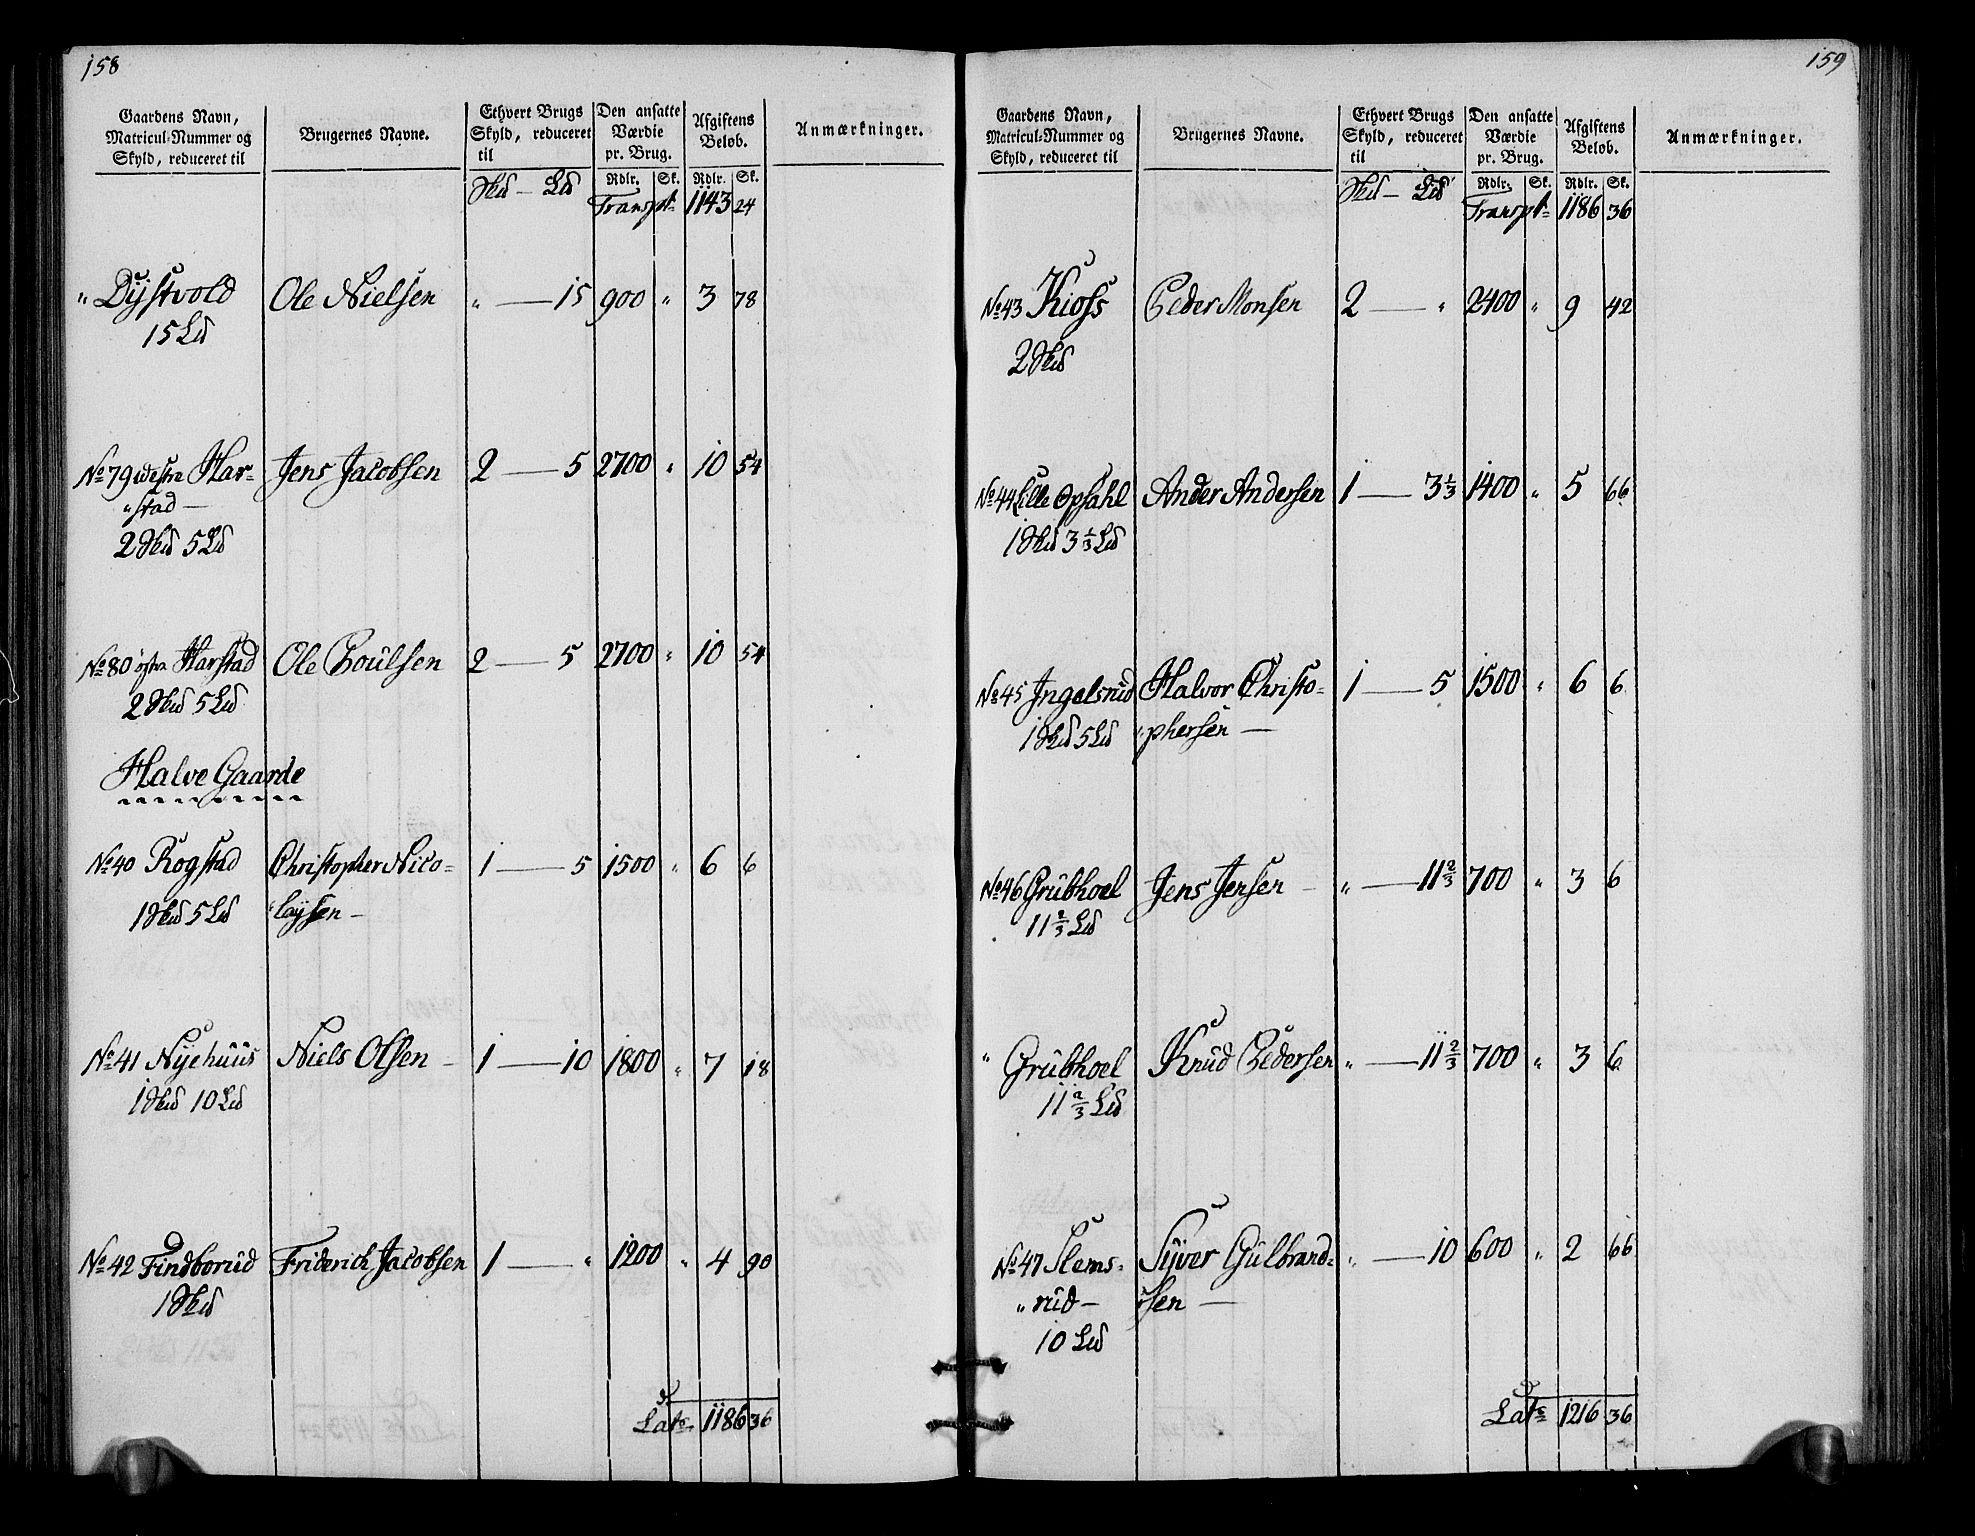 158
Gaardens Navn,
Matricul-Nummer og
Skyld, reduceret til
Brugernes Navne.
Ethvert Brugs
Skyld, reduceret
til
Den ansatte
Værdie
pr. Brug.
Afgiftens
Beløb.
Anmærkninger.
Skd — Ld
Rdlr. Sk. Rdlr. Sk.
Transpt 1143 24
" Dÿstvold Ole Nielsen " — 15 900 " 3 78
15 Ld
No 79 westre Har- Jens Jacobsen 2 — 5 2700 " 10 54
"stad —
2 Skd 5 Ld
No 80 østre Harstad Ole Poulsen 2 — 5 2700 " 10 54
2 Skd 5 Ld
Halve Gaarde
No 40 Rogstad Christopher Nico- 1 — 5 1500 " 6 6
1 Skd 5 Ld "laysen —
No 41 Nÿehuus Niels Olsen — 1 — 10 1800 " 7 18
1 Skd 10 Ld
No 42 Findborud Friderich Jacobsen 1 — " 1200 " 4 90
1 Skd
Lats 1186 36
159
Gaardens Navn,
Matricul-Nummer og
Skyld, reduceret til
Brugernes Navne.
Ethvert Brugs
Skyld, reduceret
til
Den ansatte
Værdie
pr. Brug.
Afgiftens
Beløb.
Anmærkninger.
Skd — Ld
Rdlr. Sk. Rdlr. Sk.
Transpt 1186 36
No 43 Kioss Peder Monsen 2 — " 2400 " 9 42
2 Skd
No 44 Lille Opsahl Ander Andersen 1 — 3 1/3 1400 " 5 66
1 Skd 3 1/3 Ld
No 45 Ingelsrud Halvor Christo- 1 — 5 1500 " 6 6
1 Skd 5 Ld "phersen —
No 46 Grubhoel Jens Jensen — " — 11 2/3 700 " 3 6
11 2/3 Ld
" Grubhoel Knud Pedersen " — 11 2/3 700 " 3 6
11 2/3 Ld
No 47 Slems- Syver Gulbrand- " — 10 600 " 2 66
"rud — "sen —
10 Ld
Lats 1216 36